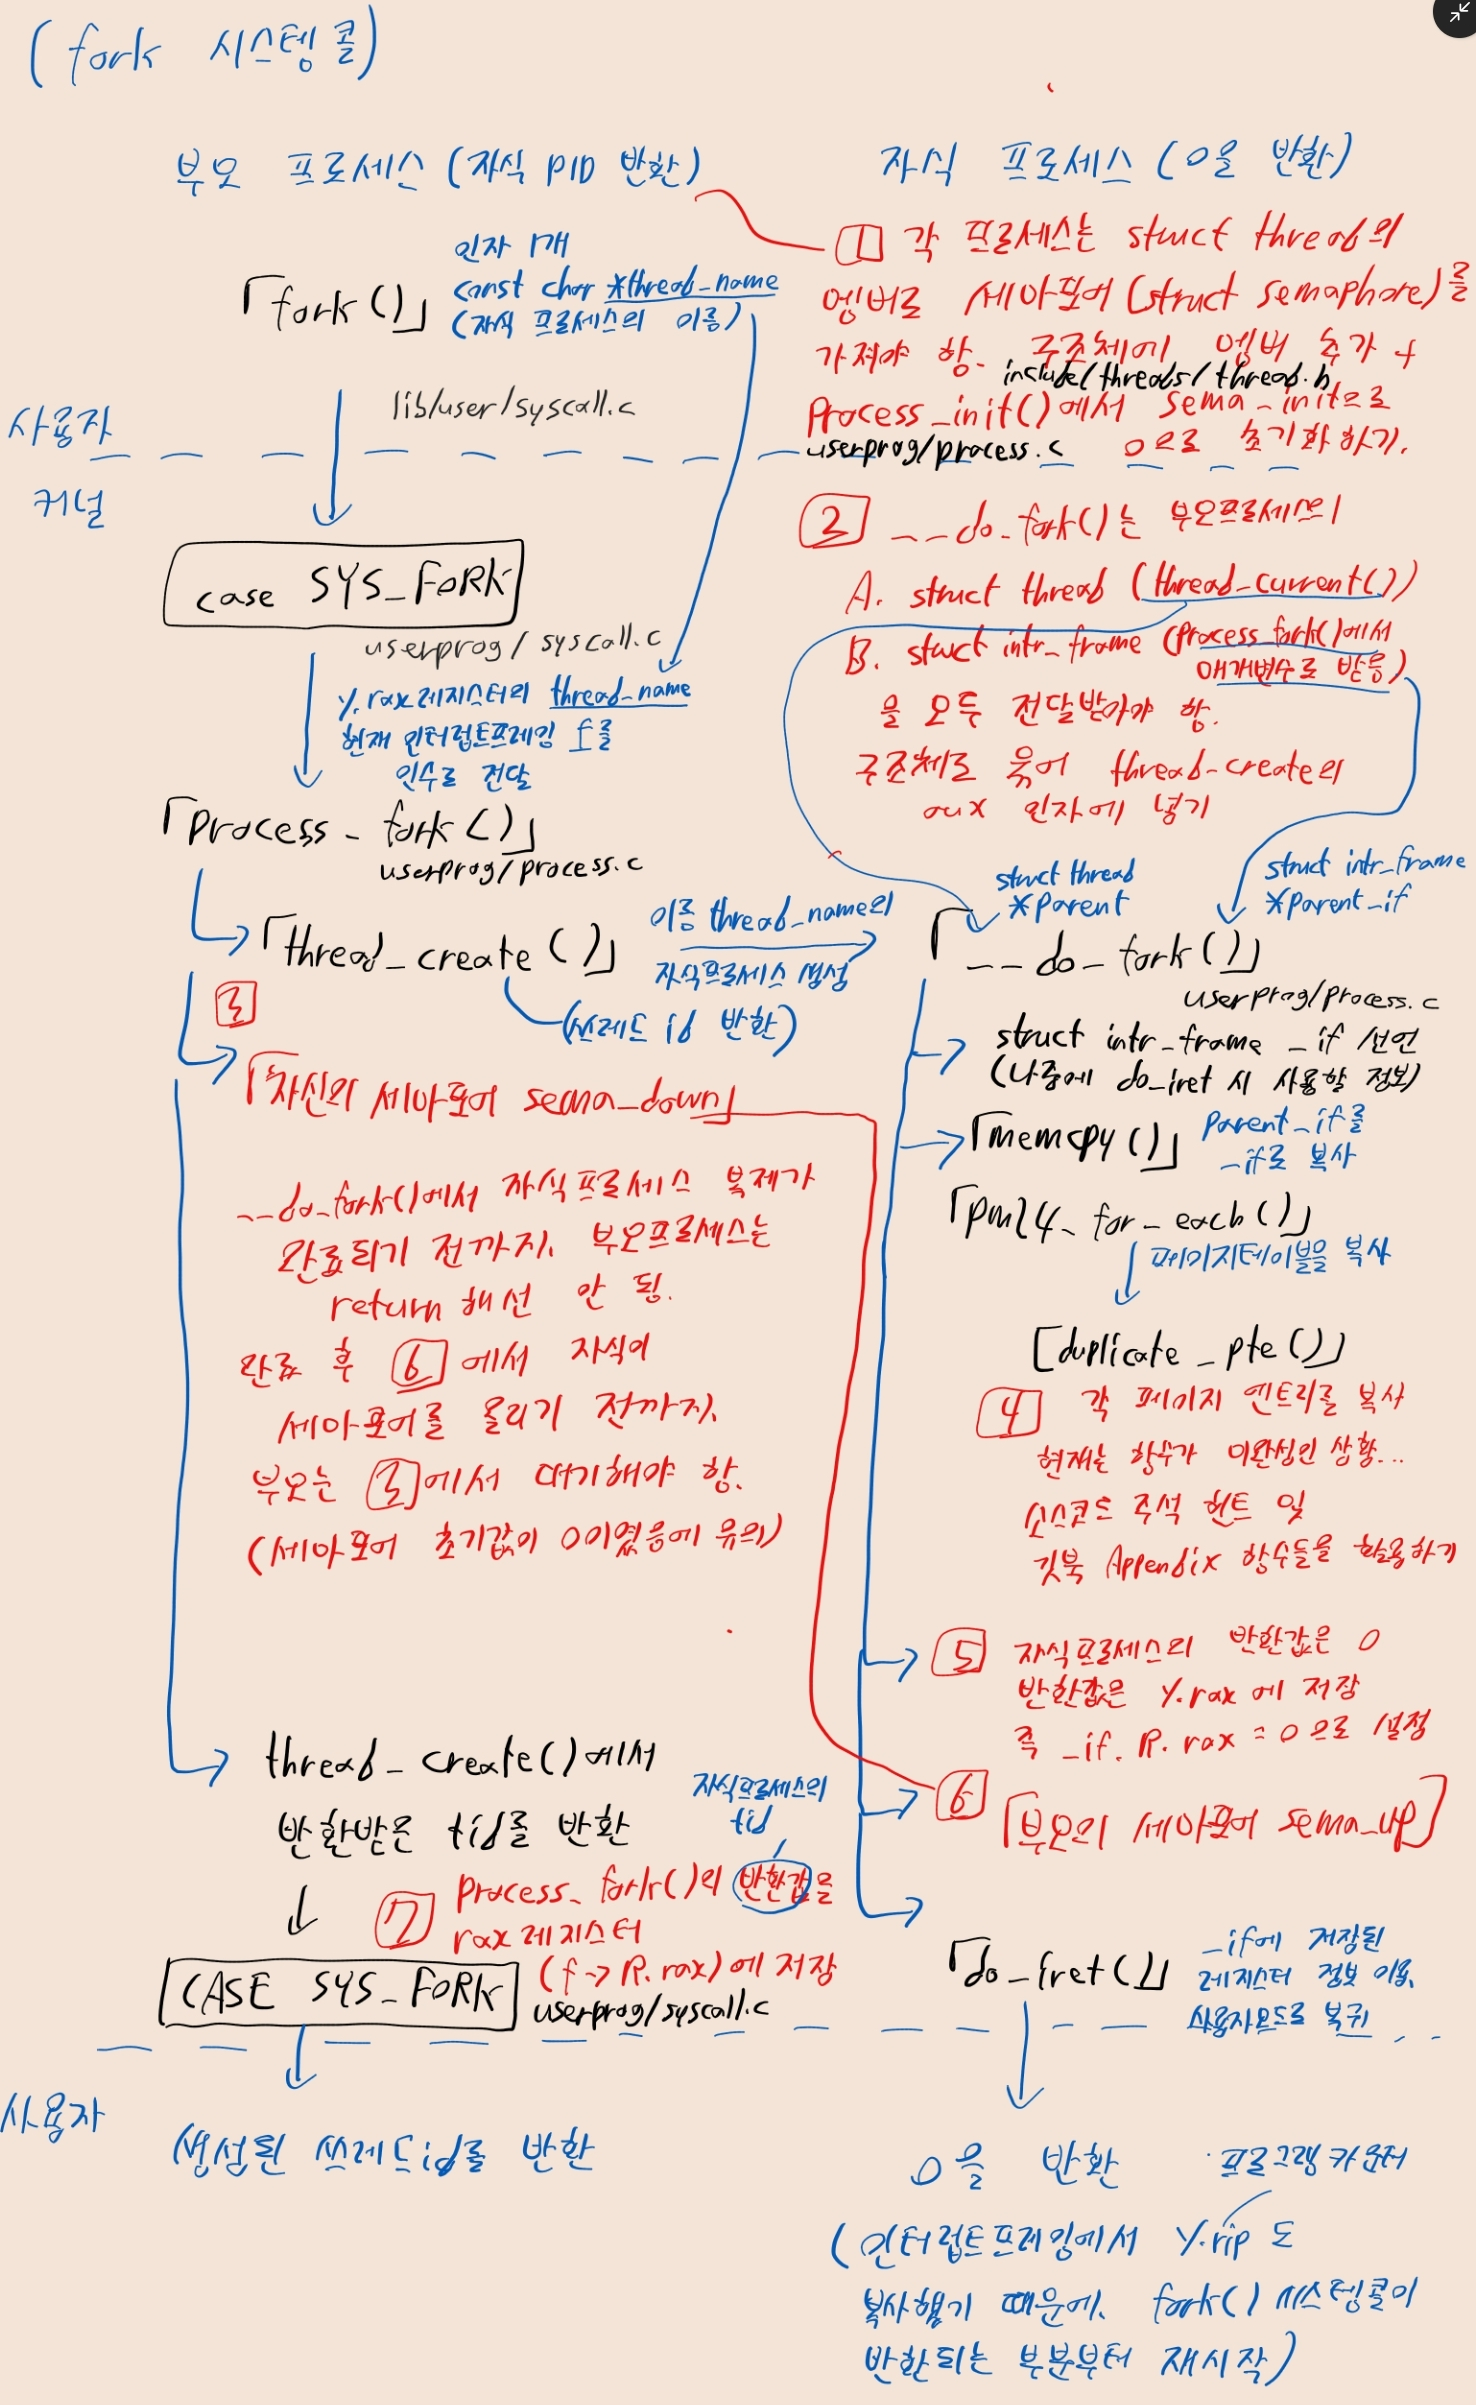 (fork 시스템 콜)
부모 프로세스 (자식 PID 반환)
「fork()」
인자 1개
const char *thread_name
(자식 프로세스의 이름)
lib/user/syscall.c
사용자
커널
case SYS_FORK
userprog/syscall.c
%rax 레지스터의 thread_name
현재 인터럽트프레임 f를
인수로 전달
「process_fork()」
userprog/process.c
「thread_create()」
이름 thread_name의
자식프로세스 생성
(쓰레드 id 반환)
3
「자신의 세마포어 sema_down」
__do_fork()에서 자식프로세스 복제가
완료되기 전까지, 부모프로세스는
return해선 안 됨.
완료 후 6에서 자식이
세마포어를 올리기 전까지,
부모는 3에서 대기해야 함.
(세마포어 초기값이 0이었음에 유의)
thread_create()에서
반환받은 tid를 반환
자식프로세스의
tid
7 process_fork()의 반환값을
rax 레지스터
(f->R.rax)에 저장
CASE SYS_FORK
userprog/syscall.c
사용자
(생성된 쓰레드id를 반환
자식 프로세스 (0을 반환)
1 각 프로세스는 struct thread의
멤버로 세마포어(struct semaphore)를
가져야 함. 구조체에 멤버 추가 +
include/threads/thread.h
process_init()에서 sema_init으로
userprog/process.c 0으로 초기화하기.
2 __do_fork()는 부모프로세스의
A. struct thread (thread_current())
B. struct intr_frame (process_fork()에서
매개변수로 받음)
을 모두 전달받아야 함.
구조체로 묶어 thread_create의
aux 인자에 넣기
struct thread
*parent
struct intr_frame
*parent_if
「__do_fork()」
userprog/process.c
struct intr_frame _if 선언
(나중에 do_iret 시 사용할 정보)
「memcpy()」
parent_if를
_if로 복사
「pml4_for_each()」
페이지테이블을 복사
[duplicate_pte()」
4 각 페이지 엔트리를 복사
현재는 함수가 미완성인 상황...
소스코드 주석 힌트 및
깃북 Appendix 함수들을 활용하기
5 자식프로세스의 반환값은 0
반환값은 %rax에 저장
즉 _if.R.rax = 0으로 설정
6 「부모의 세마포어 sema_up」
「do_iret()」
_if에 저장된
레지스터 정보 이용,
사용자모드로 복귀
0을 반환
프로그램카운터
(인터럽트프레임에서 %rip도
복사했기 때문에, fork() 시스템콜이
반환되는 부분부터 재시작)